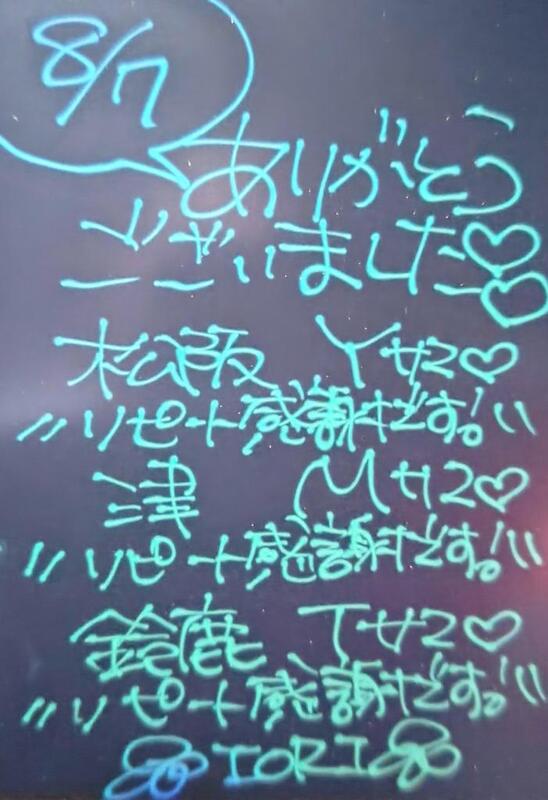 8/7
ありがとう
ございました♡♡
松阪 Yサン♡
〃リピート感謝です!!〃
津 Mサン♡
〃リピート感謝です!!〃
鈴鹿 Tサン♡
〃リピート感謝です!!〃
IORI